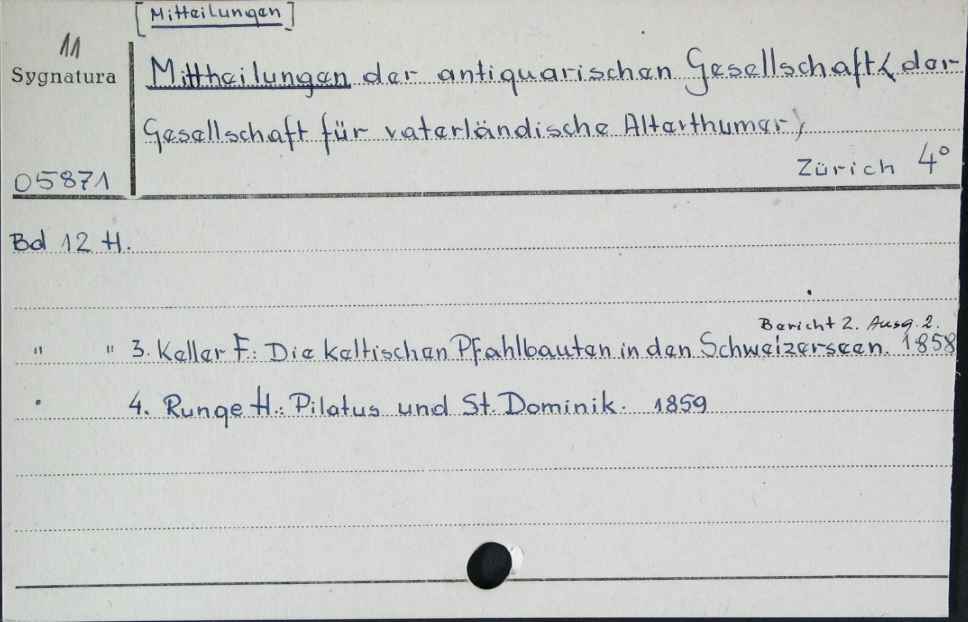 [Mitteilungen]
11
Sygnatura
Mittheilungen der antiquarischen Gesellschaft < der
Gesellschaft für vaterländische Alterthumer )
Zürich 4°
05871
Bd 12 H.
Bericht 2. Ausg. 2.
" " 3. Keller F.: Die keltischen Pfahlbauten in den Schweizerseen. 1858
" 4. Runge H.: Pilatus und St. Dominik. 1859